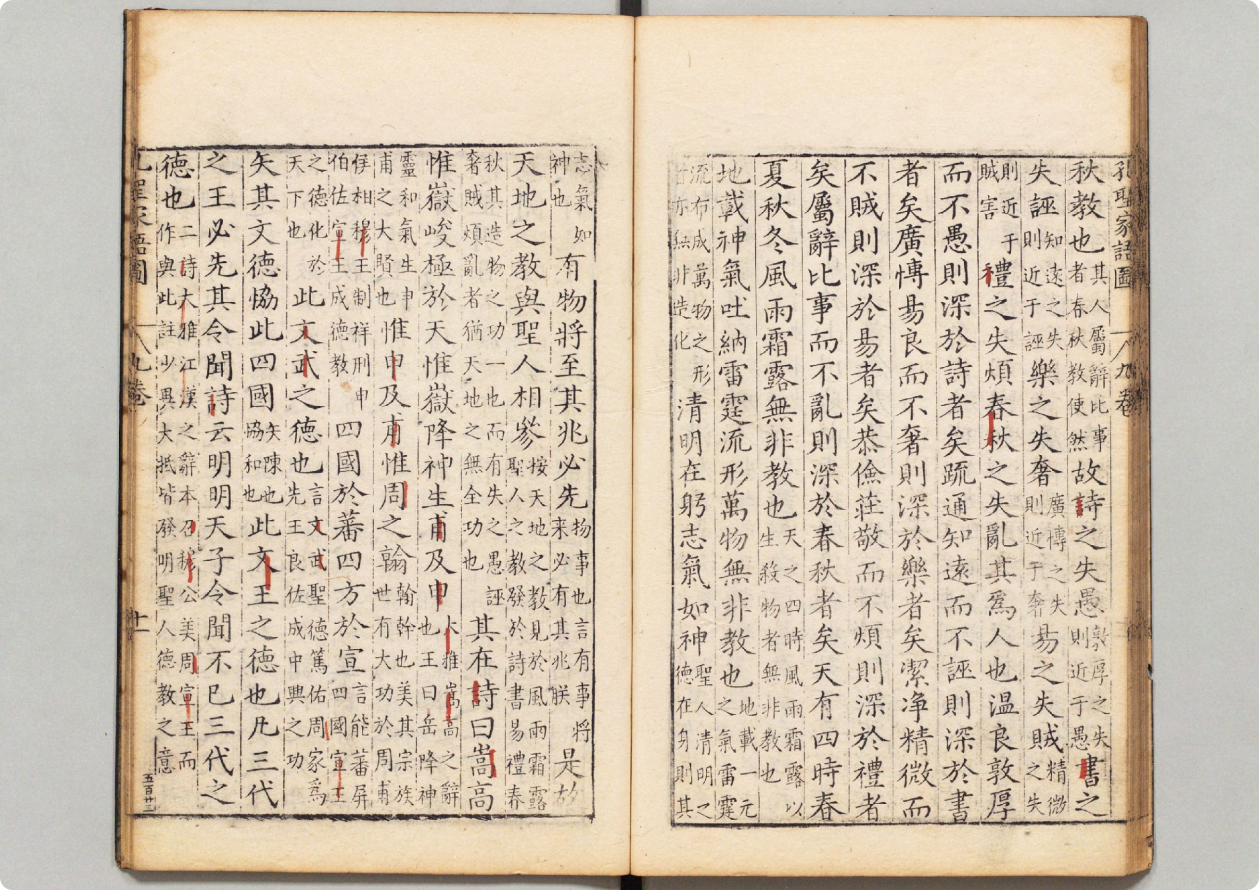 孔聖家語圖 八九卷
秋教也其人屬辭比事者春秋教使然故詩之失愚敦厚之失則近于愚書之
失誣知遠之失則近于誣樂之失奢廣博之失則近于奢易之失賊精微之失
則近于賊害禮之失煩春秋之失亂其爲人也溫良敦厚
而不愚則深於詩者矣疏通知遠而不誣則深於書
者矣廣博易良而不奢則深於樂者矣潔净精微而
不賊則深於易者矣恭儉莊敬而不煩則深於禮者
矣屬辭比事而不亂則深於春秋者矣天有四時春
夏秋冬風雨霜露無非教也天之四時風雨霜露以生殺物者無非教也
地載神氣吐納雷霆流形萬物無非教也地載一元之氣雷霆
流布成萬物之形者亦無非造化清明在躬志氣如神聖人清明之德在身則其
志氣如神也有物將至其兆必先物事也言有事將来必有其兆朕是故
天地之教與聖人相參按天地之教見於風雨霜露聖人之教發於詩書易禮春
秋其造物之功一也而有失之愚誣奢賊煩亂者猶天地之無全功也其在詩曰嵩高
惟嶽峻極於天惟嶽降神生甫及申大雅嵩高之辭也王曰岳降神
靈和氣生申甫之大賢也惟申及甫惟周之翰翰幹也美其宗族世有大功於周甫
侯相穆王制祥刑申伯佐宣王成德教四國於蕃四方於宣言能蕃屏四國宣王
之德化於天下也此文武之德也言文武聖德篤佑周家爲先王良佐成中興之功
矢其文德恊此四國矢陳也協和也此文王之德也凡三代
之王必先其令聞詩云明明天子令聞不已三代之
德也二詩大雅江漢之辭本召穆公美周宣王而作與此註少異大抵皆發明聖人德教之意
孔聖家語圖 八九卷 十一
五百廿三